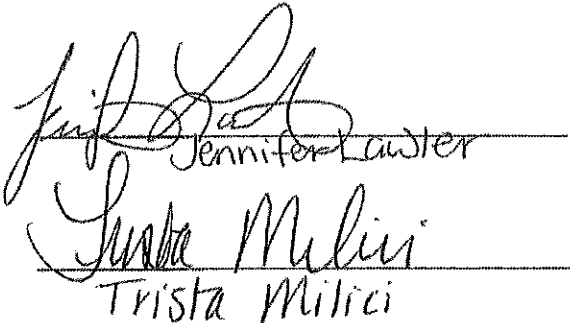 Jennifer Lawler
Trista Milici
Trista Milici